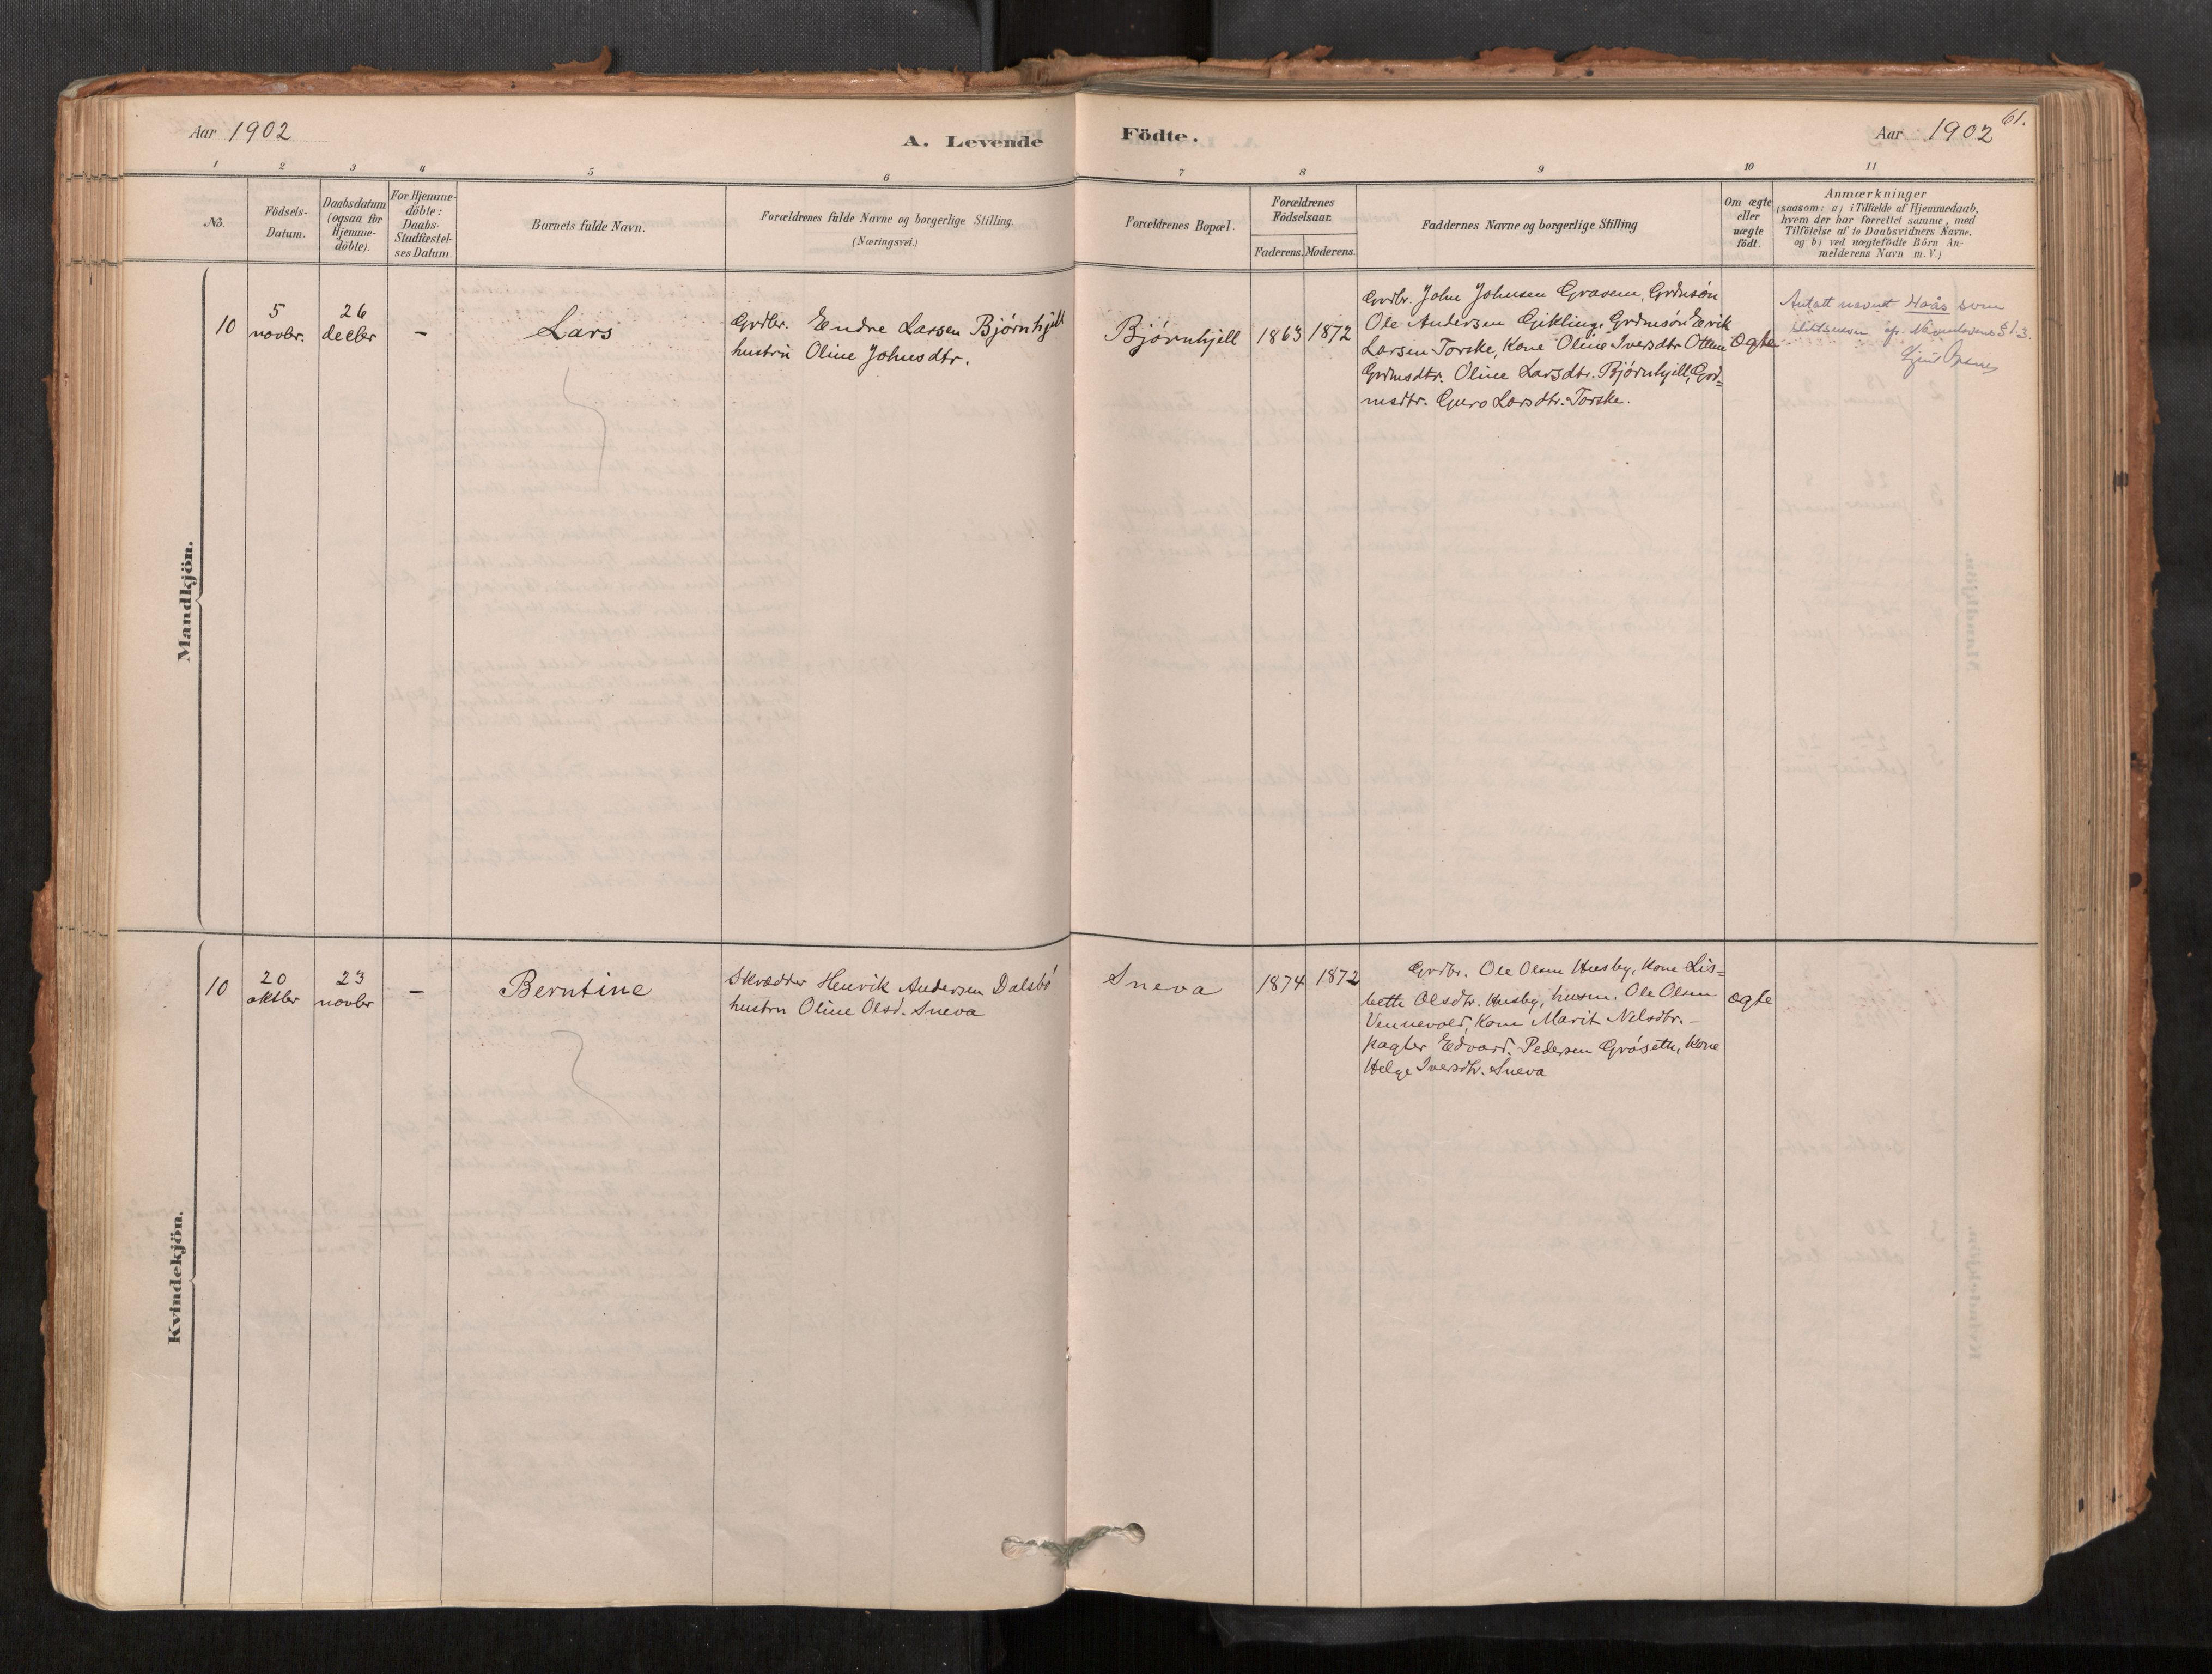 Aar 1902
A. Levende
Födte.
Aar 1902
61.
1
2
3
4
5
6
7
8
9
10
11
No.
Födsels-
Datum.
Daabsdatum
(ogsaa for
Hjemme-
döbte).
For Hjemme-
döbte:
Daabs-
Stadfæstel-
ses Datum.
Barnets fulde Navn.
Forældrenes fulde Navne og borgerlige Stilling.
(Næringsvei.)
Forældrenes Bopæl.
Forældrenes
Födselsaar.
Faderens.
Moderens.
Faddernes Navne og borgerlige Stilling
Om ægte
eller
uægte
födt.
Anmærkninger
(saasom: a) i Tilfælde af Hjemmedaab,
hvem der har forrettet samme, med
Tilföielse af to Daabsvidners Navne.
og b) ved uægtefödte Börn An-
melderens Navn m. V.)
Mandkjön.
10
5
novbr.
26
decbr
–
Lars
Grdbr. Endre Larsen Bjørnhjell
hustru Oline Johnsdtr.
Bjørnhjell
1863
1872
Grdbr. John Johnsen Gravem, Grdmsøn
Ole Andersen Gikling, Grdmsøn Eerik
Larsen Torske, Kone Oline Iversdtr Ottem
Grdmsdtr. Oline Larsdtr. Bjørnhjell, Grd=
msdtr. Guro Larsdtr. Torske.
ægte
Antatt navnet Haås som
slektsnavn cfr. Navnelovens § 1.3.
Kvindekjön.
10
20
oktbr
23
novbr
–
Berntine
Skrædder Henrik Andersen Dalsbø
hustru Oline Olsd. Sneva
Sneva
1874
1872
Grdbr. Ole Olsen Husby, Kone Lis=
beth Olsdtr. Husby, husm. Ole Olsen
Vennevold, Kone Marit Nelsdtr. –
pagter Edvard Pedersen Grøseth, Kone
Helge Iversdtr. Sneva
ægte